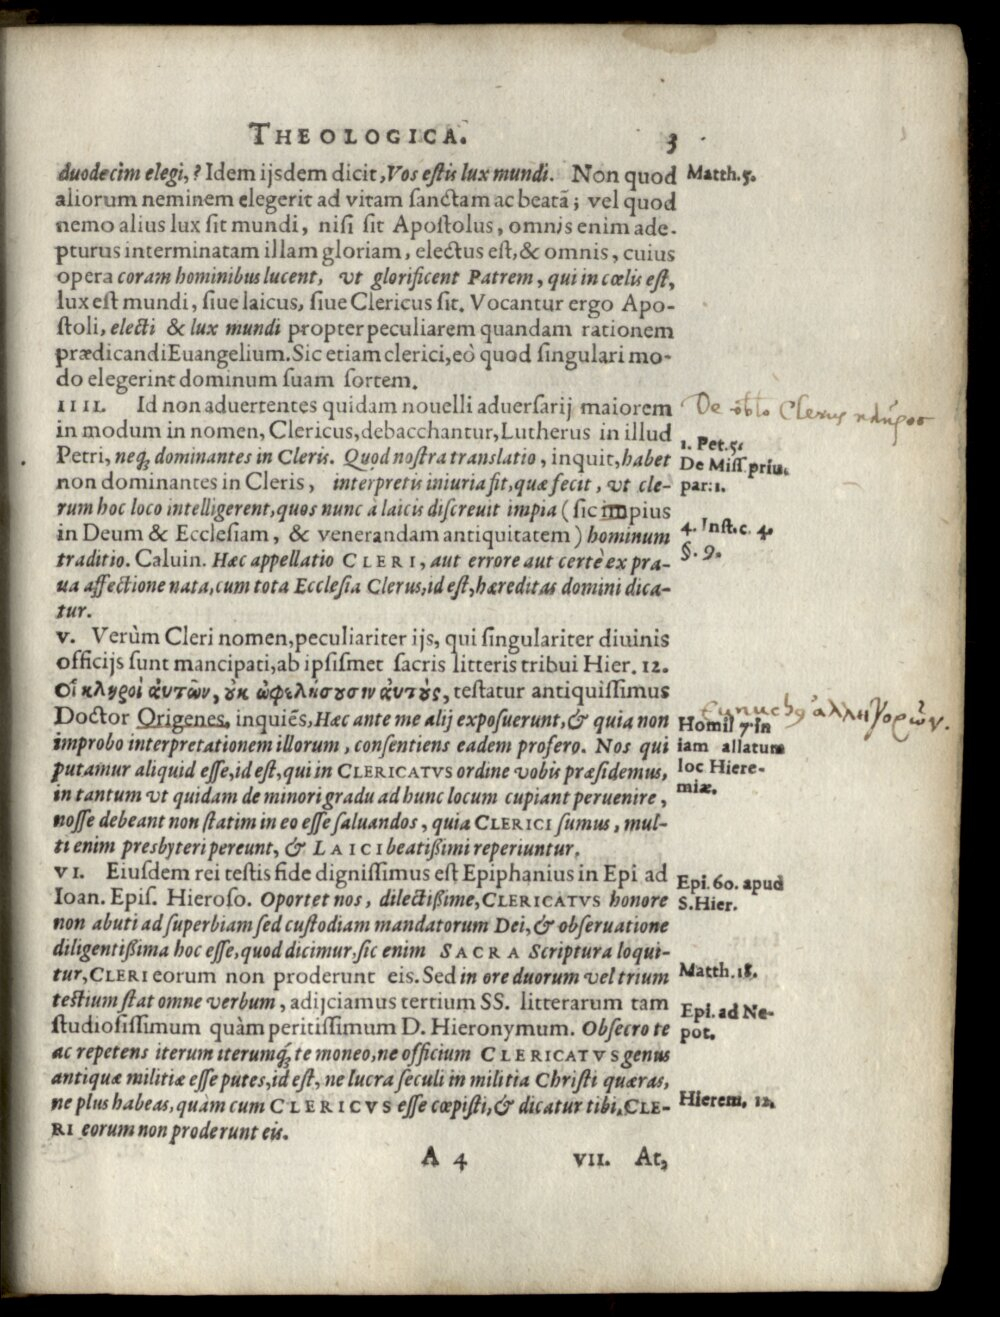 THEOLOGICA. 3
duodecim elegi,? Idem ijsdem dicit, Vos eſtis lux mundi. Non quod
Matth. 5.
aliorum neminem elegerit ad vitam ſanctam ac beatā; vel quod
nemo alius lux ſit mundi, niſi ſit Apoſtolus, omnis enim ade-
pturus interminatam illam gloriam, electus eſt, & omnis, cuius
opera coram hominibus lucent, vt glorificent Patrem, qui in cœlis eſt,
lux eſt mundi, ſiue laicus, ſiue Clericus ſit. Vocantur ergo Apo-
ſtoli, electi & lux mundi propter peculiarem quandam rationem
prædicandi Euangelium. Sic etiam clerici, eò quod ſingulari mo-
do elegerint dominum ſuam ſortem.
IIII. Id non aduertentes quidam nouelli aduerſarij maiorem
De Clerus
in modum in nomen, Clericus, debacchantur, Lutherus in illud
1. Pet. 5.
Petri, neq; dominantes in Cleris. Quod noſtra tranſlatio, inquit, habet
De Miſſ. priu.
non dominantes in Cleris, interpretis iniuria fit, quæ fecit, vt cle-
par: 1.
rum hoc loco intelligerent, quos nunc à laicis diſcreuit impia (ſic impius
in Deum & Eccleſiam, & venerandam antiquitatem) hominum
4. Inſt. c. 4.
traditio. Caluin. Hæc appellatio CLERI, aut errore aut certè ex pra-
§. 9.
ua affectione nata, cum tota Eccleſia Clerus, id eſt, hæreditas domini dica-
tur.
V. Verùm Cleri nomen, peculiariter ijs, qui ſingulariter diuinis
officijs ſunt mancipati, ab ipſiſmet ſacris litteris tribui Hier. 12.
Οἱ κληροὶ ἀυτῶν, ȣκ ὠφελήσȣσιν ἀυτȣ́ς, teſtatur antiquiſſimus
ἀλληγορῶν.
Doctor Origenes, inquiēs, Hæc ante me alij expoſuerunt, & quia non
Homil 7 in
improbo interpretationem illorum, conſentiens eadem profero. Nos qui
iam allatum
putamur aliquid eſſe, id eſt, qui in CLERICATVS ordine vobis præſidemus,
loc Hiere-
in tantum vt quidam de minori gradu ad hunc locum cupiant peruenire,
miæ.
noſſe debeant non ſtatim in eo eſſe ſaluandos, quia CLERICI ſumus, mul-
ti enim presbyteri pereunt, & LAICI beatißimi reperiuntur.
VI. Eiuſdem rei teſtis fide digniſſimus eſt Epiphanius in Epi ad
Epi. 60. apud
Ioan. Epiſ. Hieroſo. Oportet nos, dilectißime, CLERICATVS honore
S. Hier.
non abuti ad ſuperbiam ſed cuſtodiam mandatorum Dei, & obſeruatione
diligentißima hoc eſſe, quod dicimur, ſic enim SACRA Scriptura loqui-
tur, CLERI eorum non proderunt eis. Sed in ore duorum vel trium
Matth. 18.
teſtium ſtat omne verbum, adijciamus tertium SS. litterarum tam
Epi. ad Ne-
ſtudioſiſſimum quàm peritiſſimum D. Hieronymum. Obſecro te
pot.
ac repetens iterum iterumq; te moneo, ne officium CLERICATVS genus
antiquæ militiæ eſſe putes, id eſt, ne lucra ſeculi in militia Chriſti quæras,
ne plus habeas, quàm cum CLERICVS eſſe cœpiſti, & dicatur tibi, CLE-
Hierem. 12.
RI eorum non proderunt eis.
A 4 VII. At,